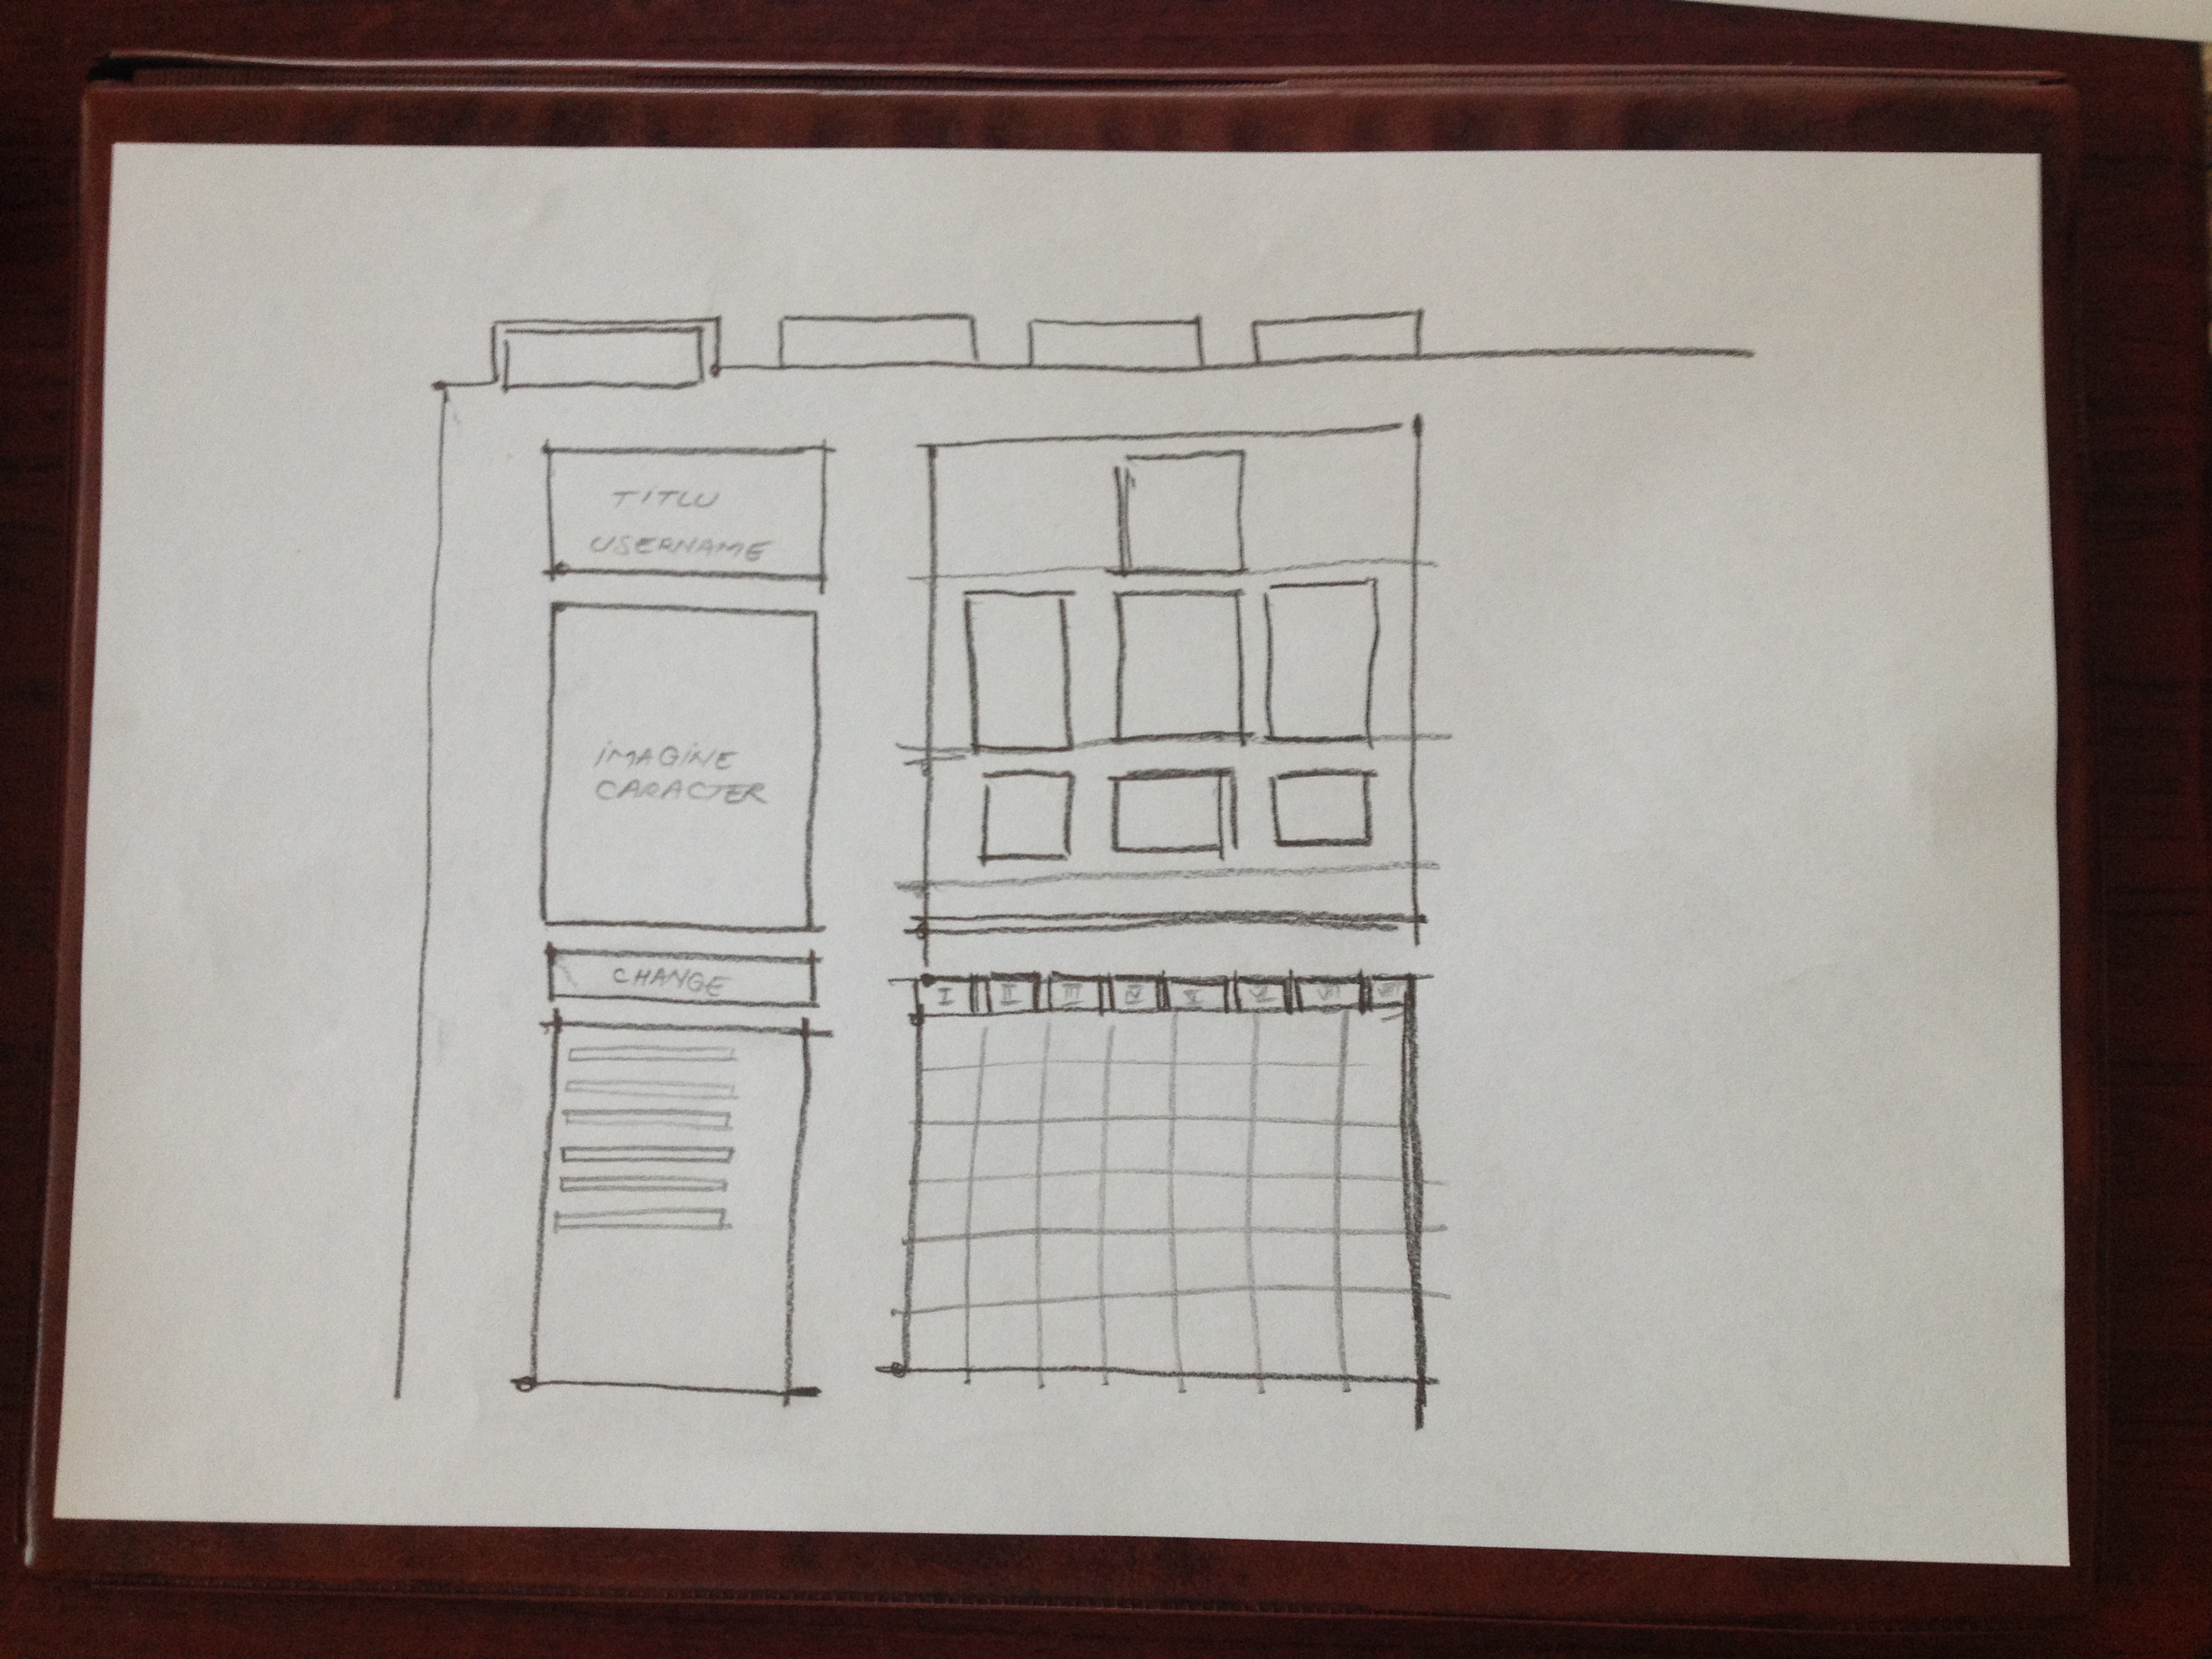 TITLU
USERNAME
IMAGINE
CARACTER
CHANGE
I II III IV V VI VII VIII